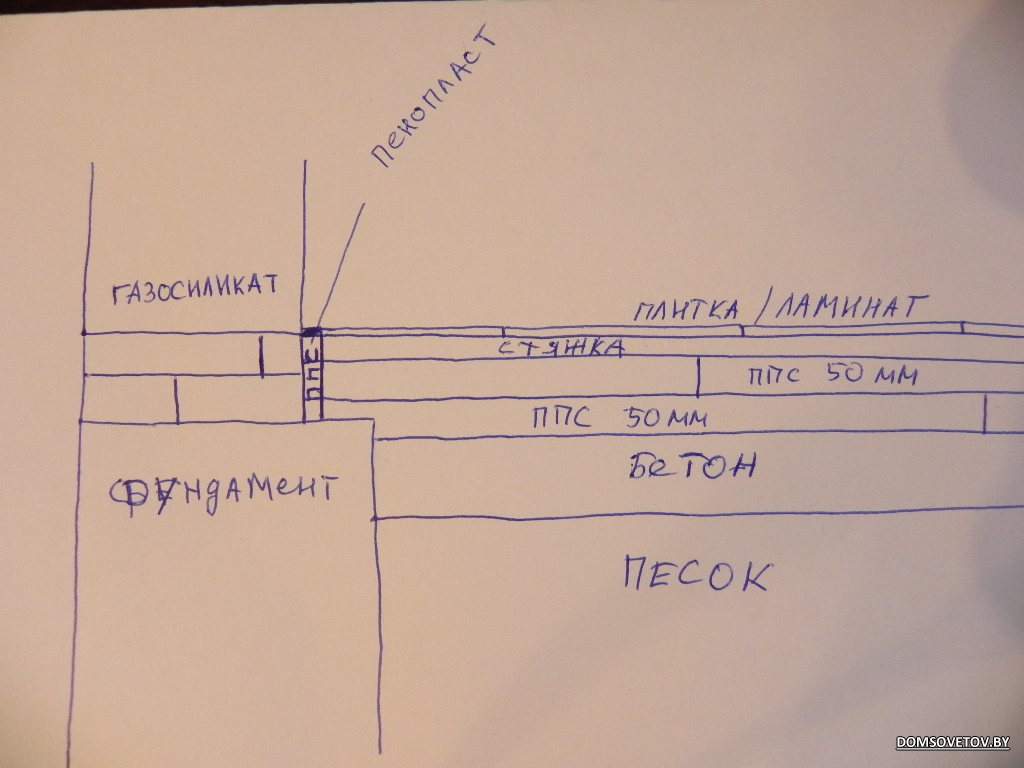 ПЕНОПЛАСТ
ГАЗОСИЛИКАТ
ПЛИТКА / ЛАМИНАТ
СТЯЖКА
ППС
ППС 50 ММ
ППС 50 ММ
БЕТОН
ФУНДАМЕНТ
ПЕСОК
DOMSOVETOV.BY